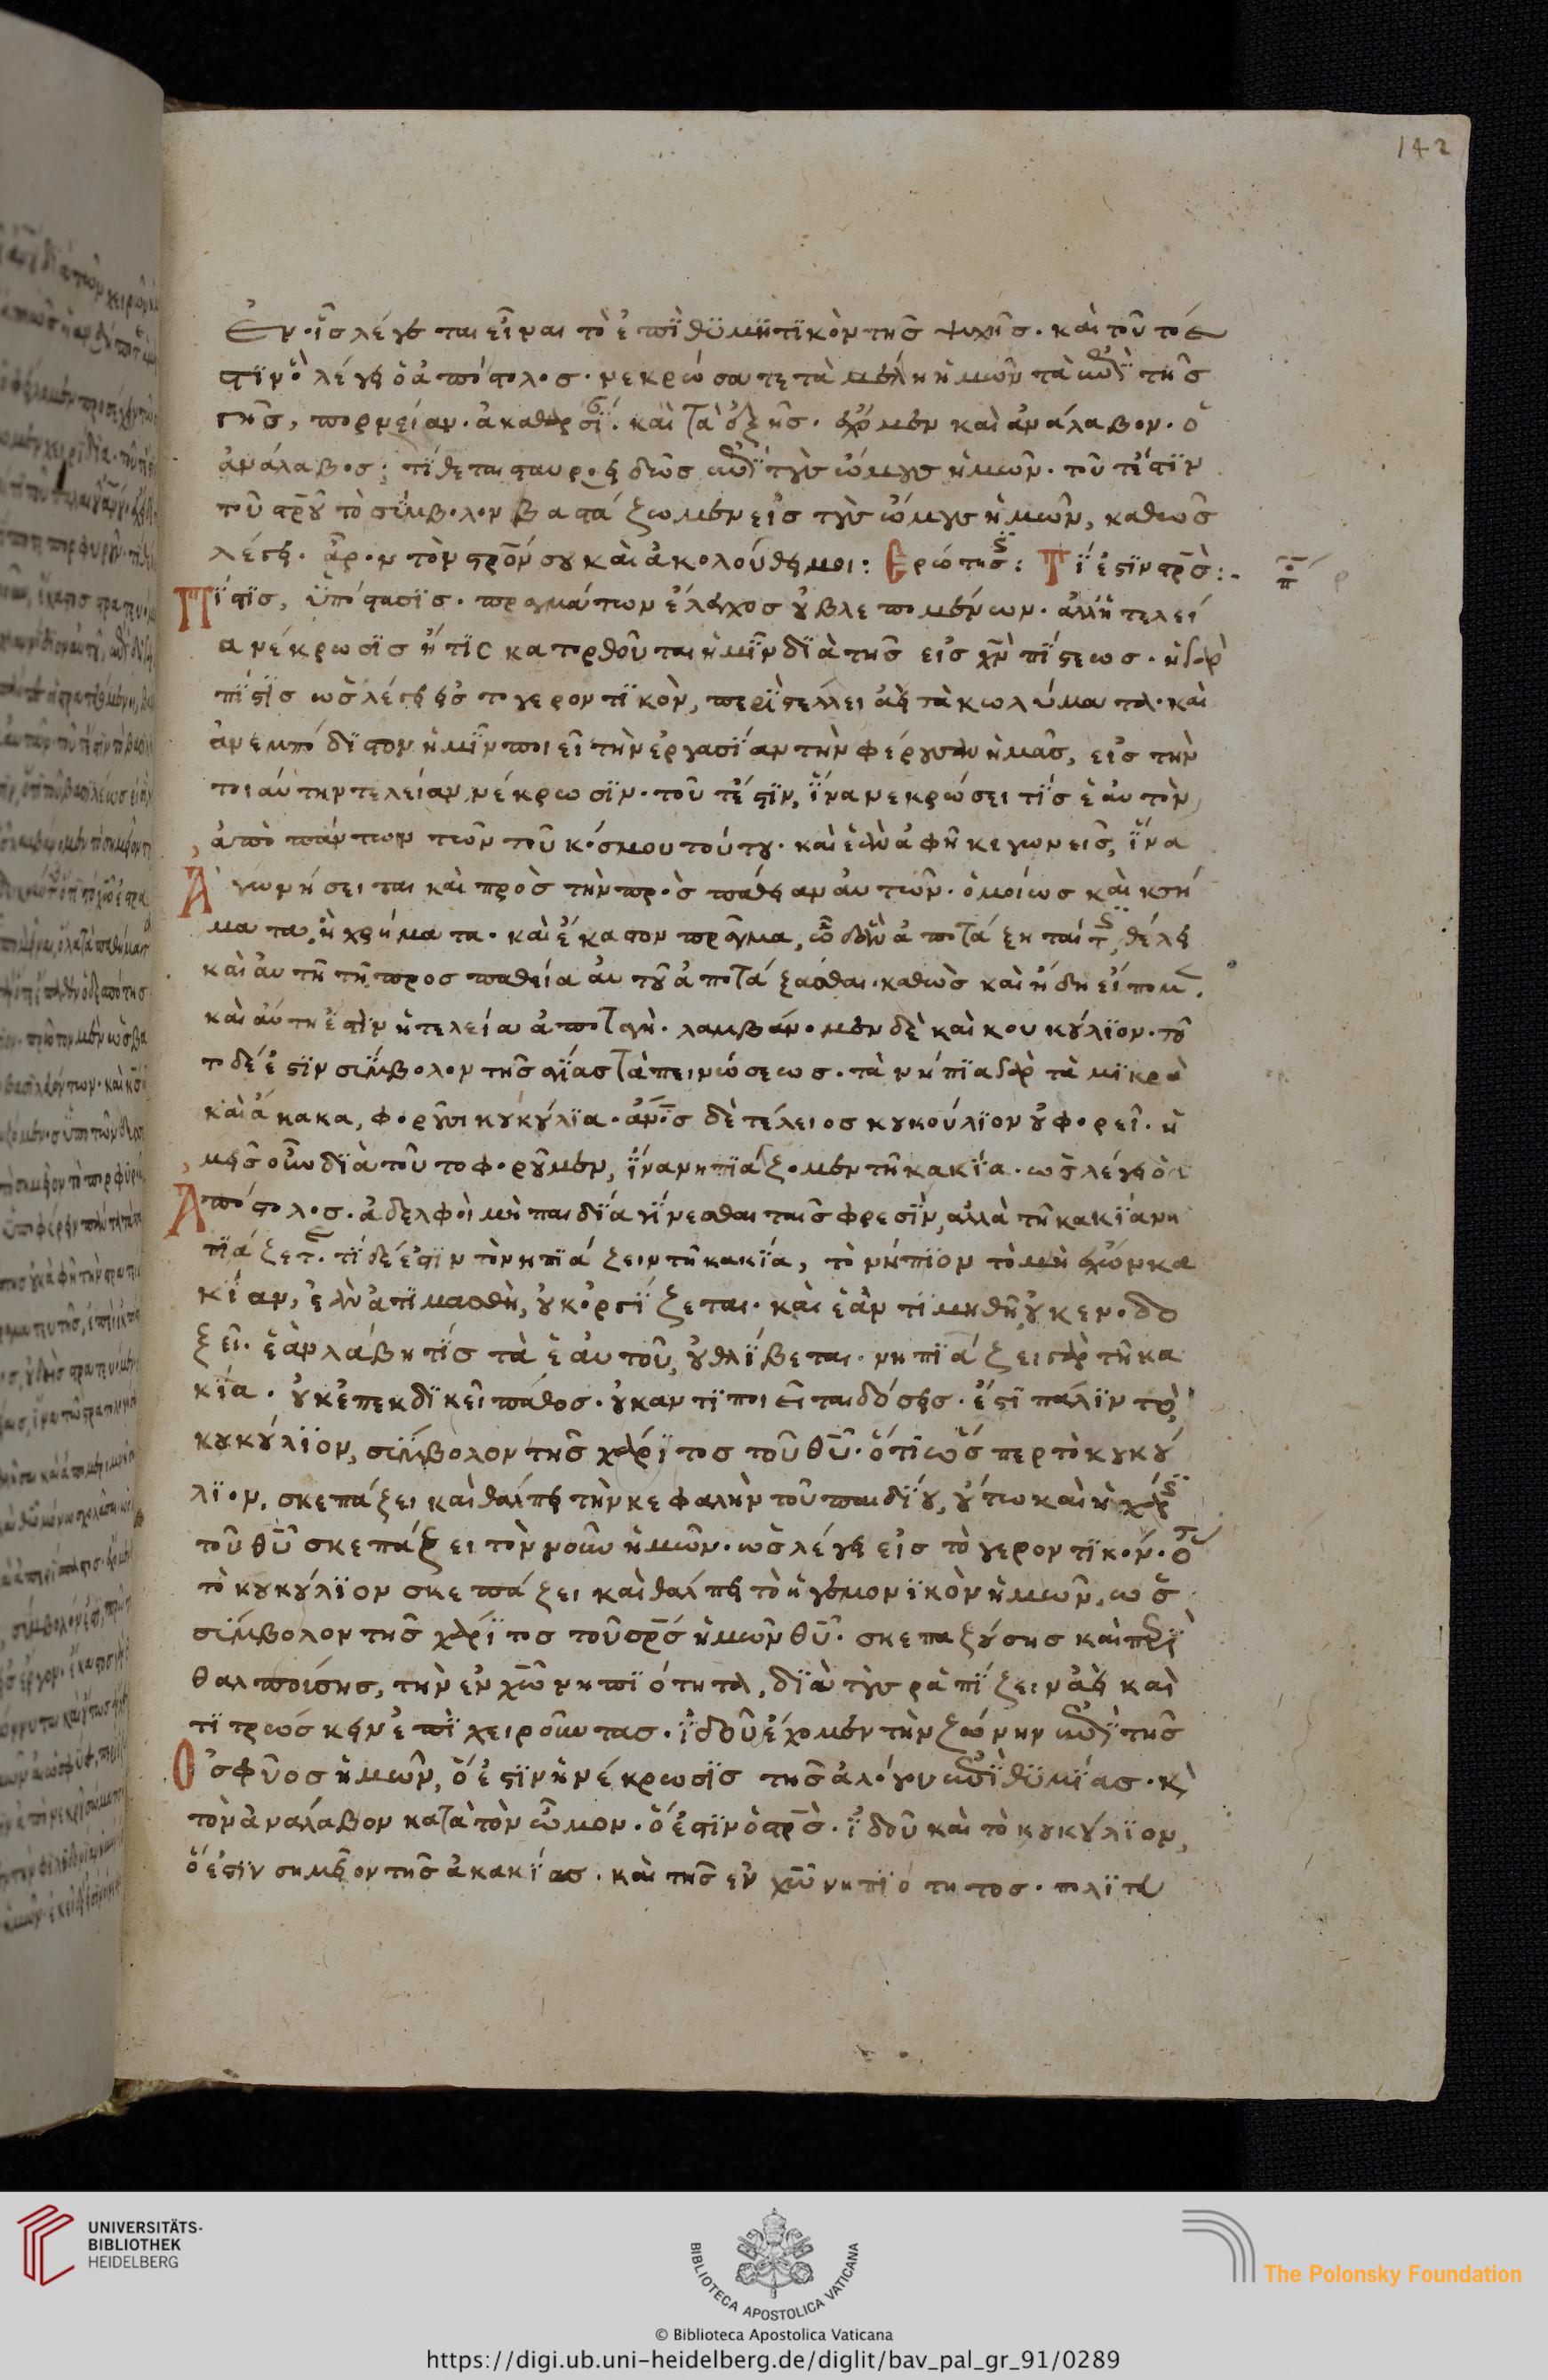 142
Ἐν οἷς λέγεται εἶναι τὸ ἐπϊθϋμητϊκὸν τῆς ψυχῆς. καὶ τοῦτό ἐ
στϊν ὃ λέγει ὁ ἀπόστολος. νεκρώσατε τὰ μέλη ἡμῶν τὰ ἐπῒ τῆς
γῆς, πορνείαν. ἀκαθαρσί. καὶ τὰ ὁξῆς. ἔχομεν καὶ ἀνάλαβον. ὁ
ἀνάλαβος; τίθεται σταυροειδῶς ἐπῒ τοὺς ὤμους ἡμῶν. τοῦτέστϊν
τοῦ στροῦ τὸ σύμβολον βαστάζωμεν εἰς τοὺς ὤμους ἡμῶν, καθὼς
λέγει. ἆρον τὸν στρόν σου καὶ ἀκολούθει μοι: Ερώτησς: Τί ἐστϊν στρς:
Πίστϊς, ὑπόστασϊς. πραγμάτων ἔλεγχος οὐ βλεπομένων. ἀλλ' ἡ τελεί
α νέκρωσϊς ἥτϊς κατορθοῦται ἡμῖν δϊὰ τῆς εἰς χν πίστεως. ἡ γὰρ
πίστϊς ὡς λέγει εἰς το γεροντϊκὸν, περϊστέλλει ἀεὶ τὰ κωλύματα. καὶ
ἀνεμπόδϊστον ἡμῖν ποιεῖ τὴν ἐργασίαν τὴν φέρουσαν ἡμᾶς, εἰς τὴν
τοιαύτην τελείαν νέκρωσϊν. τοῦτέστϊν, ἵνα νεκρώσει τίς ἑαυτὸν
ἀπὸ πάντων τῶν τοῦ κόσμου τούτου. καὶ ἐὰν ἀφῆκε γωνεις, ἵνα
Ἀγωνήσειται καὶ πρὸς τὴν προσπάθειαν αὐτῶν. ὁμοίως καὶ κτή
ματα, ἢ χρήματα. καὶ ἕκαστον πρᾶγμα, ὧ δ' ἂν ἀποτάξηται τς, θέλει
καὶ αὐτῆ τῆ προσπαθεία αὐτοῦ ἀποτάξασθαι. καθὼς καὶ ἤδη εἴπομ.
καὶ αὕτη ἐστὶν ἡ τελεία ἀποταγὴ. λαμβάνομεν δὲ καὶ κουκούλϊον. τοῦ
το δέ ἐστϊν σύμβολον τῆς ἁγίας ταπεινώσεως. τὰ νήπϊα γὰρ τὰ μϊκρὰ
καὶ ἄκακα, φοροῦσι κουκούλϊα. ἄνος δὲ τέλειος κουκούλϊον οὐ φορεῖ. ἡ
μεῖς οὖν δϊὰ τοῦτο φοροῦμεν, ἵνα νηπϊάζομεν τῆ κακία. ὡς λέγει ὁ
Ἀπόστολος. ἀδελφοὶ μὴ παιδία γίνεσθαι ταῖς φρεσϊν, ἀλλὰ τῆ κακία νη
πϊάζετε. τί δέ ἐστϊν τὸ νηπϊάζειν τῆ κακία, τὸ νήπϊον τὸ μὴ ἔχων κα
κίαν, ἐὰν ἀτϊμασθὴ, οὐκ ὀργίζεται. καὶ ἐὰν τϊμηθῆ οὐ κενοδο
ξεῖ. ἐὰν λάβη τίς τὰ ἑαυτοῦ, οὐ θλίβεται. νηπϊάζει γὰρ τῆ κα
κία. οὐκ ἐπεκδϊκεῖ πάθος. οὐκ αντϊποιεῖται δόσεις. ἔστϊ πάλϊν τὸ
κουκούλϊον, σύμβολον τῆς χάρϊτος τοῦ θῦ. ὅτϊ ὥσπερ τὸ κουκού
λϊον, σκεπάζει καὶ θάλπει τὴν κεφαλὴν τοῦ παιδίου, οὕτω καὶ ἡ χάρς
τοῦ θῦ σκεπάζει τὸν νοῦν ἡμῶν. ὡς λέγει εἰς τὸ γεροντϊκόν. ὅτ
τὸ κουκούλϊον σκεπάζει καὶ θάλπει τὸ ἡγεμονϊκὸν ἡμῶν, ὡς
σύμβολον τῆς χάρϊτος τοῦ σρς ἡμῶν θῦ. σκεπαζούσης καὶ περϊ
θαλποίσης, τὴν ἐν χῶ νηπϊότητα, δϊὰ τοὺς ραπίζειν ἀεὶ καὶ
τϊτρώσκειν ἐπϊχειροῦντας. ἰδοῦ ἔχομεν τὴν ζώνην ἐπῒ τῆς
Ὀσφῦος ἡμῶν, ὅ ἐστϊν ἡ νέκρωσϊς τῆς ἀλόγου ἐπϊθϋμίας. κὶ
τὸν ἀνάλαβον κατὰ τὸν ὦμον. ὅ ἐστϊν ὁ στρς. ἰδοῦ καὶ τὸ κουκούλϊον,
ὅ ἐστϊν σημεῖον τῆς ἀκακίας. καὶ τῆς ἐν χῶ νηπϊότητος. πολϊτε
UNIVERSITÄTS-
BIBLIOTHEK
HEIDELBERG
BIBLIOTECA APOSTOLICA VATICANA
The Polonsky Foundation
© Biblioteca Apostolica Vaticana
https://digi.ub.uni-heidelberg.de/diglit/bav_pal_gr_91/0289